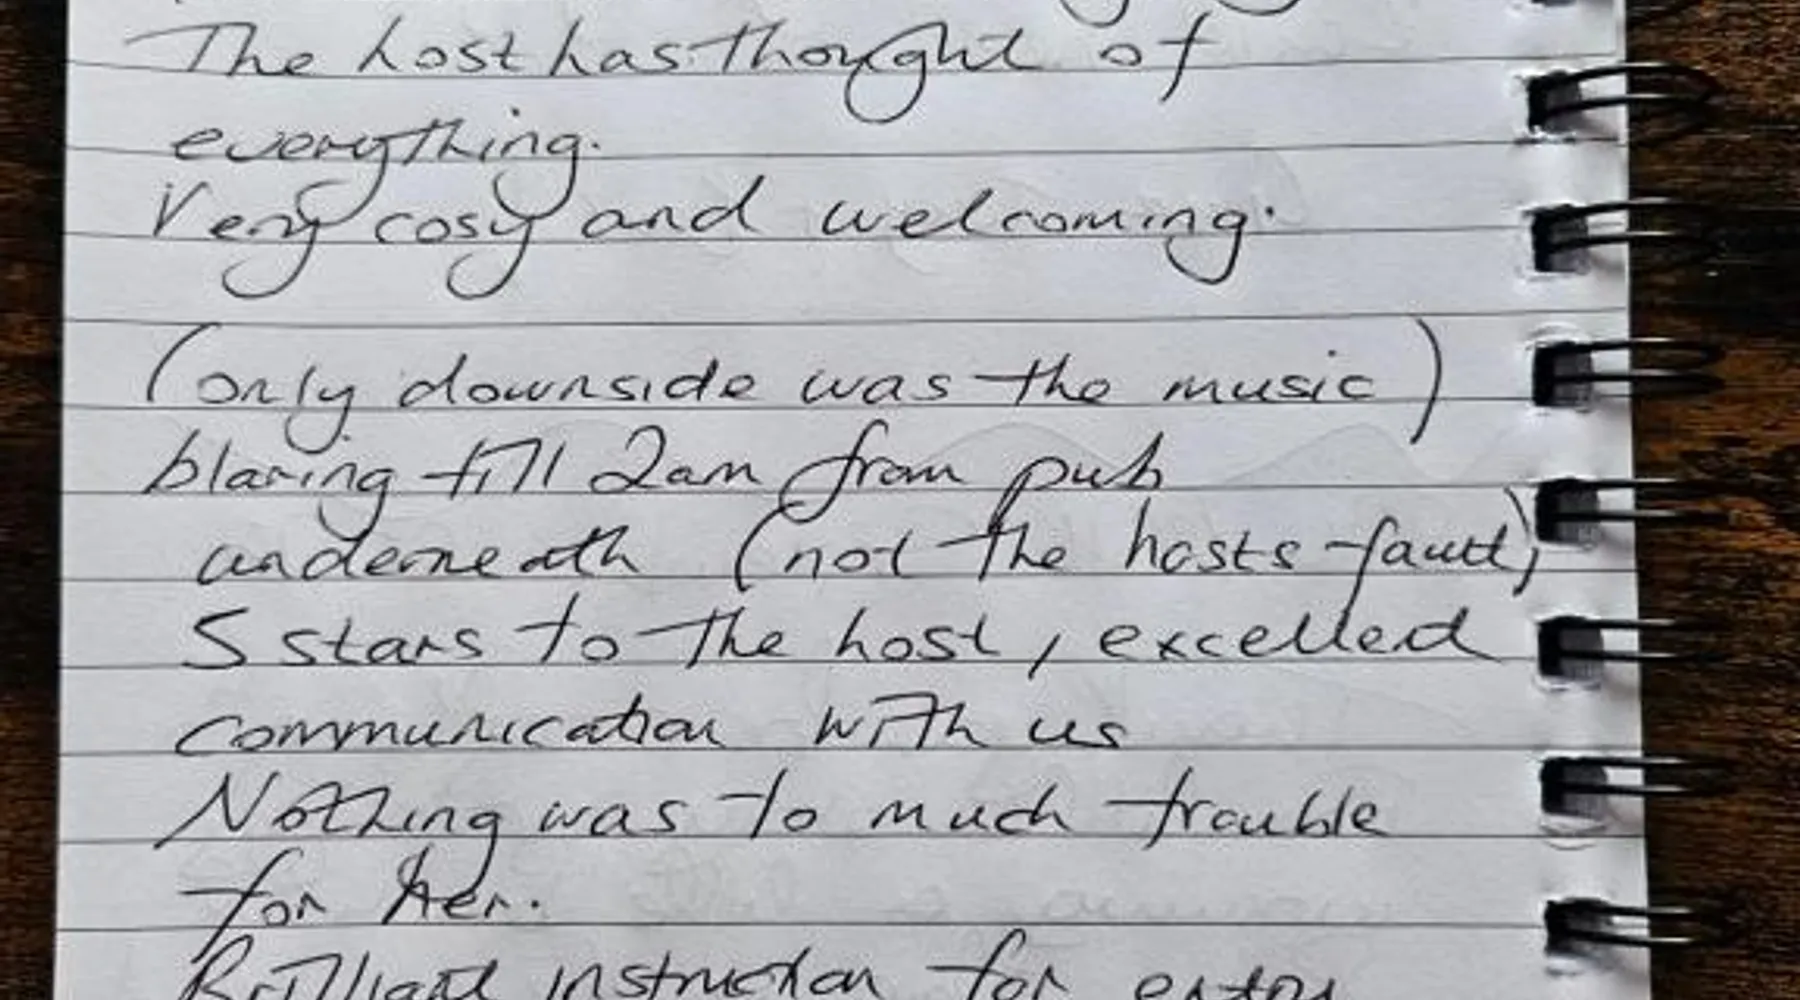 The host has thought of
everything.
Very cosy and welcoming.
(only downside was the music)
blaring till 2am from pub
underneath (not the hosts fault)
5 stars to the host, excelled
communication with us
Nothing was to much trouble
for her.
Brilliant instruction for entry